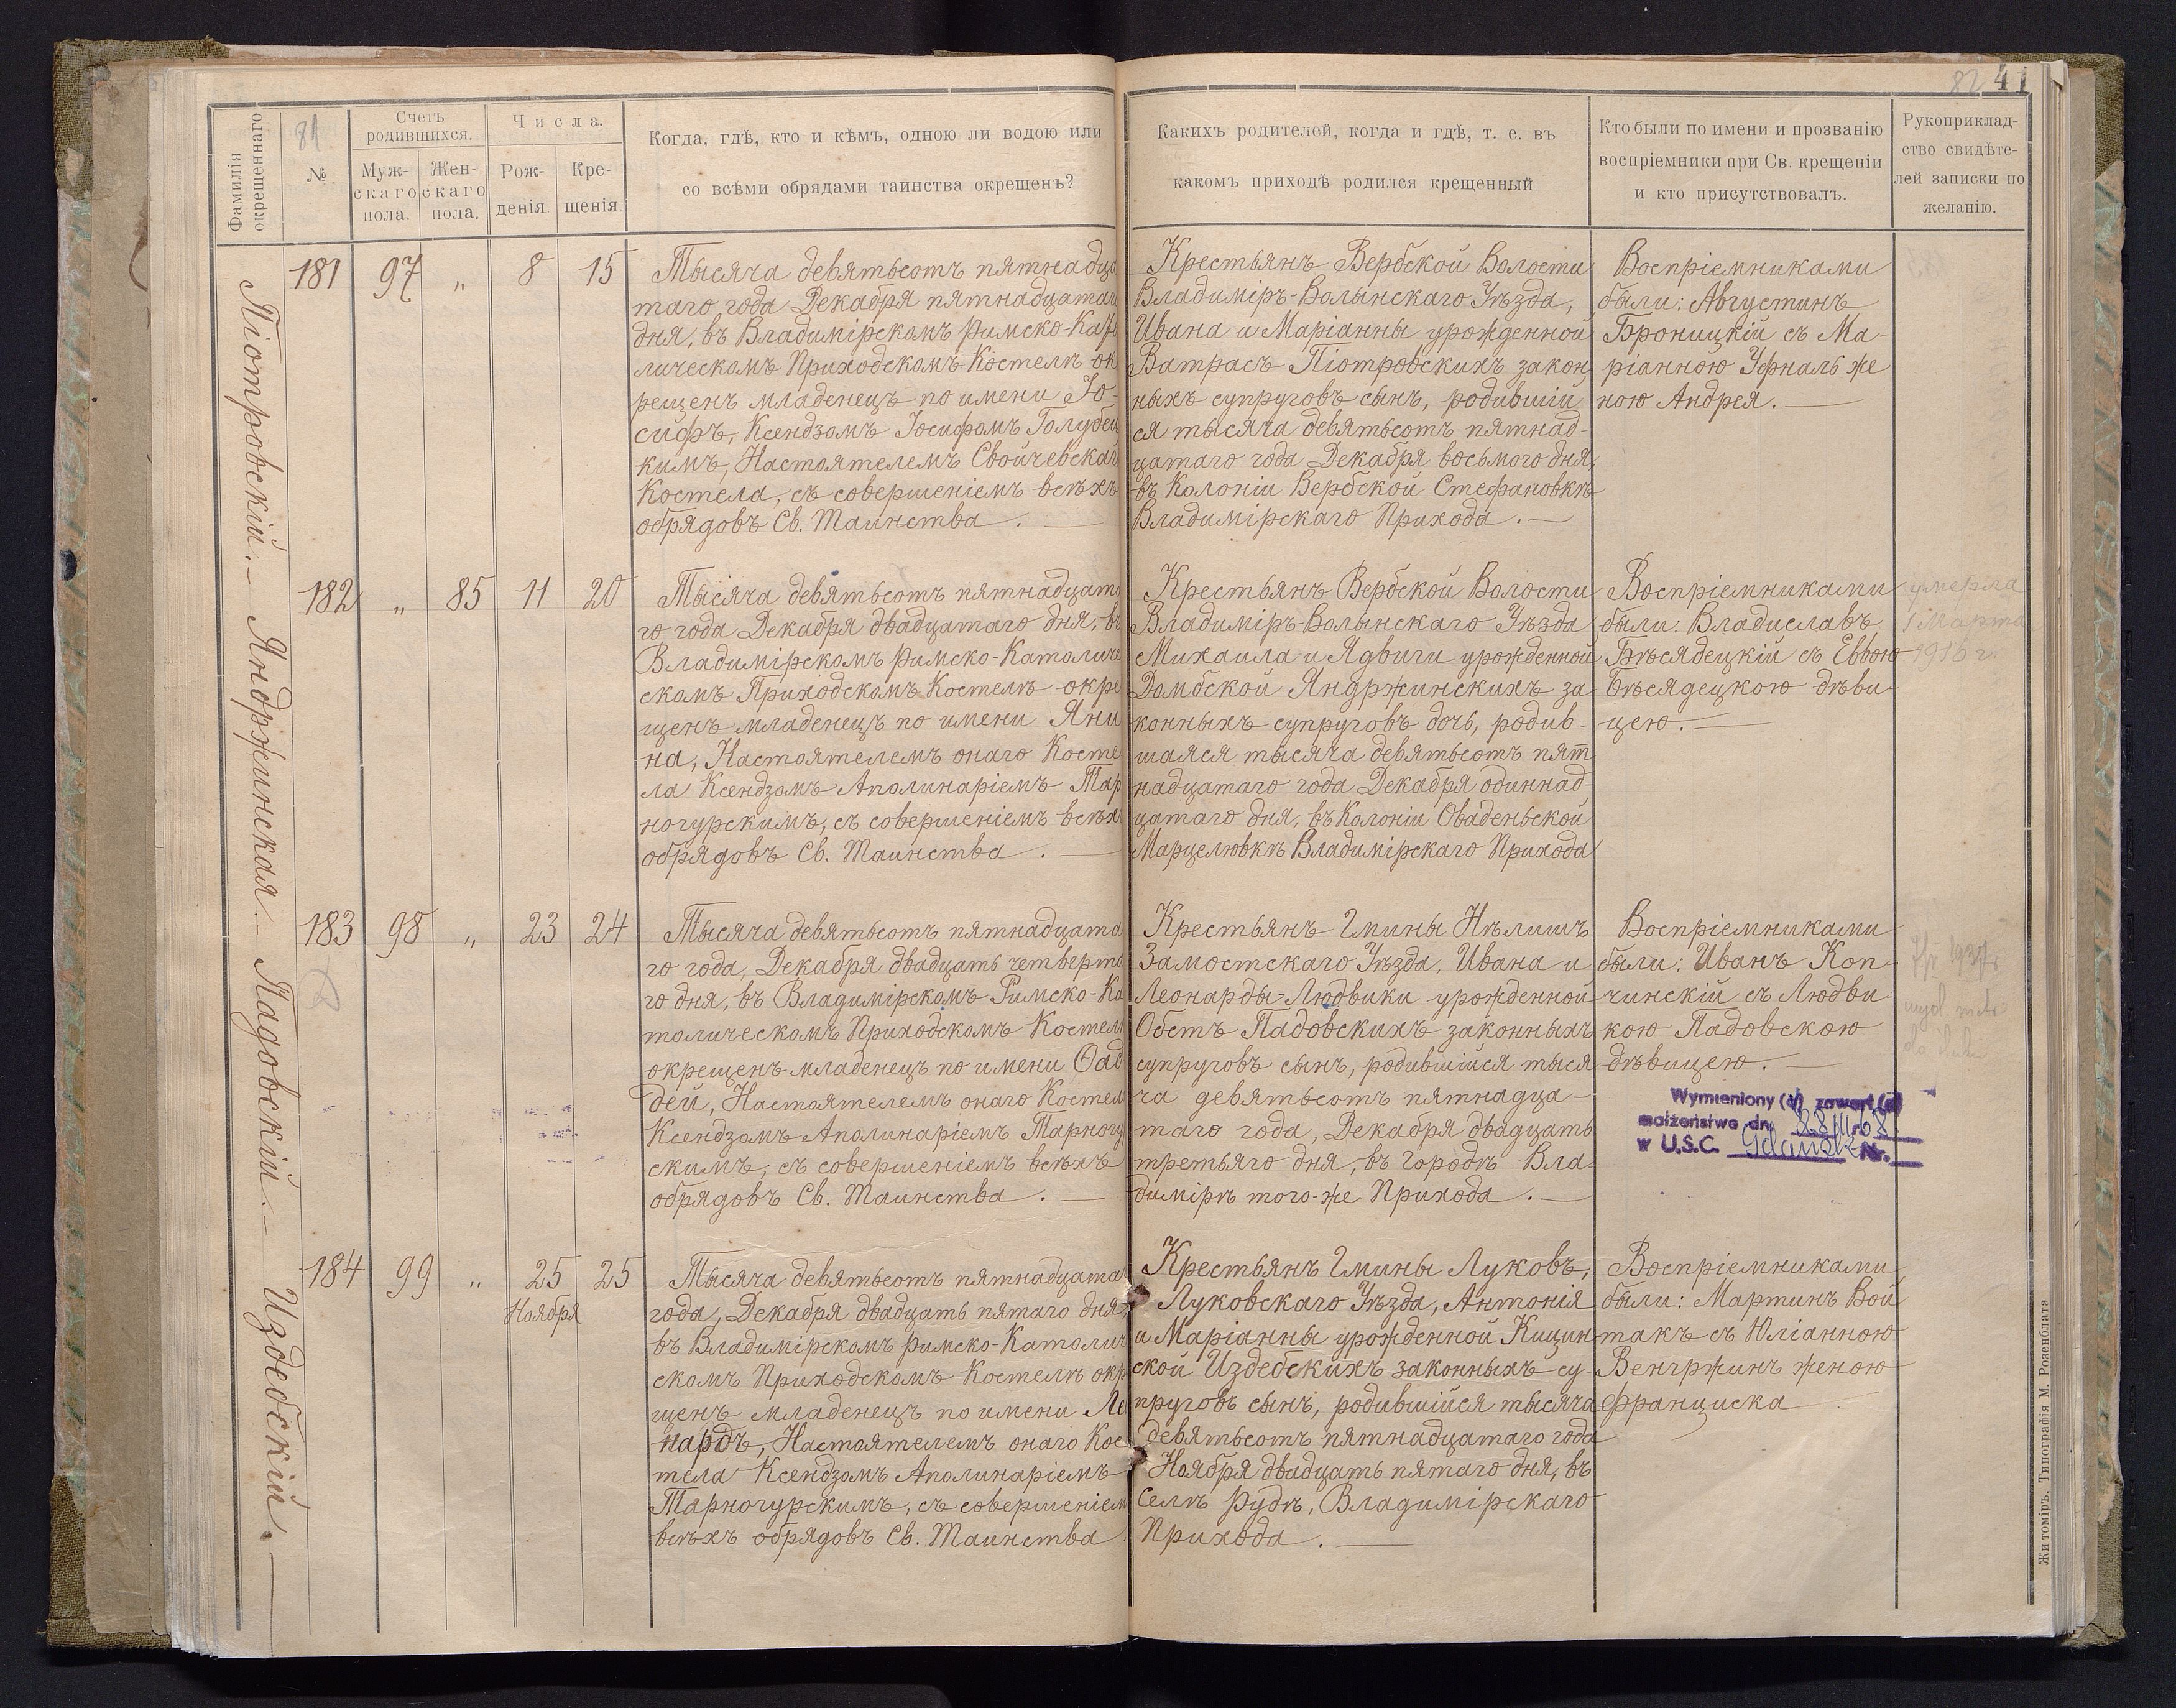 82 41
Фамилія окрещеннаго
81
№
Счетъ родившихся.
Муж-
скаго
пола.
Жен-
скаго
пола.
Числа.
Рож-
денія.
Кре-
щенія
Когда, гдѣ, кто и кѣмъ, одною ли водою или
со всѣми обрядами таинства окрещенъ?
Какихъ родителей, когда и гдѣ, т. е. въ
какомъ приходѣ родился крещенный
Кто были по имени и прозванію
воспріемники при Св. крещеніи
и кто присутствовалъ.
Рукоприклад-
ство свидѣте-
лей записки по
желанію.
Піотровскій. —
181 97 „ 8 15
Тысяча девятьсотъ пятнадца
таго года Декабря пятнадцатаго
дня, въ Владимірскомъ Римско-Като
лическомъ Приходскомъ Костелѣ ок
рещенъ младенецъ по имени Іо-
сифъ, Ксендзомъ Іосифомъ Голубец
кимъ, Настоятелемъ Свойчевскаго
Костела, съ совершеніемъ всѣхъ
обрядовъ Св. Таинства. —
Крестьянъ Вербской Волости
Владиміръ-Волынскаго Уѣзда,
Ивана и Маріанны урожденной
Ватрасъ Піотровскихъ закон
ныхъ супруговъ сынъ, родившій
ся тысяча девятьсотъ пятнад-
цатаго года Декабря восьмого дня
въ Колоніи Вербской Стефановкѣ
Владимірскаго Прихода. —
Воспріемниками
были: Августинъ
Броницкій съ Ма-
ріанною Уфналь же
ною Андрея. —
Яндржинская. —
182 „ 85 11 20
Тысяча девятьсотъ пятнадцата
го года Декабря двадцатаго дня, въ
Владимірскомъ Римско-Католиче
скомъ Приходскомъ Костелѣ окре
щенъ младенецъ по имени Яни
на, Настоятелемъ онаго Косте
ла Ксендзомъ Аполинаріемъ Тар
ногурскимъ, съ совершеніемъ всѣхъ
обрядовъ Св. Таинства. —
Крестьянъ Вербской Волости
Владиміръ-Волынскаго Уѣзда
Михаила и Ядвиги урожденной
Домбской Яндржинскихъ за
конныхъ супруговъ дочь, родив-
шаяся тысяча девятьсотъ пят
надцатаго года Декабря одиннад-
цатаго дня, въ Колоніи Оваденьской
Марцелювкѣ Владимірскаго Прихода
Воспріемниками
были: Владиславъ
Бѣсядецкій съ Еввою
Бѣсядецкою дѣви-
цею. —
умерла
1 Марта
1916 г.
Падовскій. —
183 98 „ 23 24
Тысяча девятьсотъ пятнадцата
го года, Декабря двадцать четверта
го дня, въ Владимірскомъ Римско-Ка
толическомъ Приходскомъ Костелѣ
окрещенъ младенецъ по имени Ѳад
дей, Настоятелемъ онаго Костела
Ксендзомъ Аполинаріемъ Тарногу
скимъ, съ совершеніемъ всѣхъ
обрядовъ Св. Таинства. —
Крестьянъ Гмины Нѣлишъ
Замостскаго Уѣзда, Ивана и
Леонарды-Людвики урожденной
Обстъ Падовскихъ законныхъ
супруговъ сынъ, родившійся тыся
ча девятьсотъ пятнадца-
таго года, Декабря двадцать
третьяго дня, въ Городѣ Вла-
димірѣ того-же Прихода. —
Воспріемниками
были: Иванъ Коп-
чинскій съ Людви
кою Падовскою
дѣвицею. —
Wymieniony (a) zawarł (a)
małżeństwo dn. 28 III 68
w U.S.C. Gdańsk Nr.
Издебскій. —
184 99 „ 25 25
Ноября
Тысяча девятьсотъ пятнадцатаго
года, Декабря двадцать пятаго дня
въ Владимірскомъ Римско-Католич
скомъ Приходскомъ Костелѣ окр
щенъ младенецъ по имени Ле
нардъ, Настоятелемъ онаго Кос
тела Ксендзомъ Аполинаріемъ
Тарногурскимъ, съ совершеніем
всѣхъ обрядовъ Св. Таинства.
Крестьянъ Гмины Луковъ,
Луковскаго Уѣзда, Антонія
и Маріанны урожденной Кицин
ской Издебскихъ законныхъ су-
пруговъ сынъ, родившійся тысяча
девятьсотъ пятнадцатаго года
Ноября двадцать пятаго дня, въ
Селѣ Рудѣ, Владимірскаго
Прихода. —
Воспріемниками
были: Мартинъ Вой
такъ съ Юліанною
Венгржинъ женою
Франциска
Житоміръ, Типографія М. Розенблата